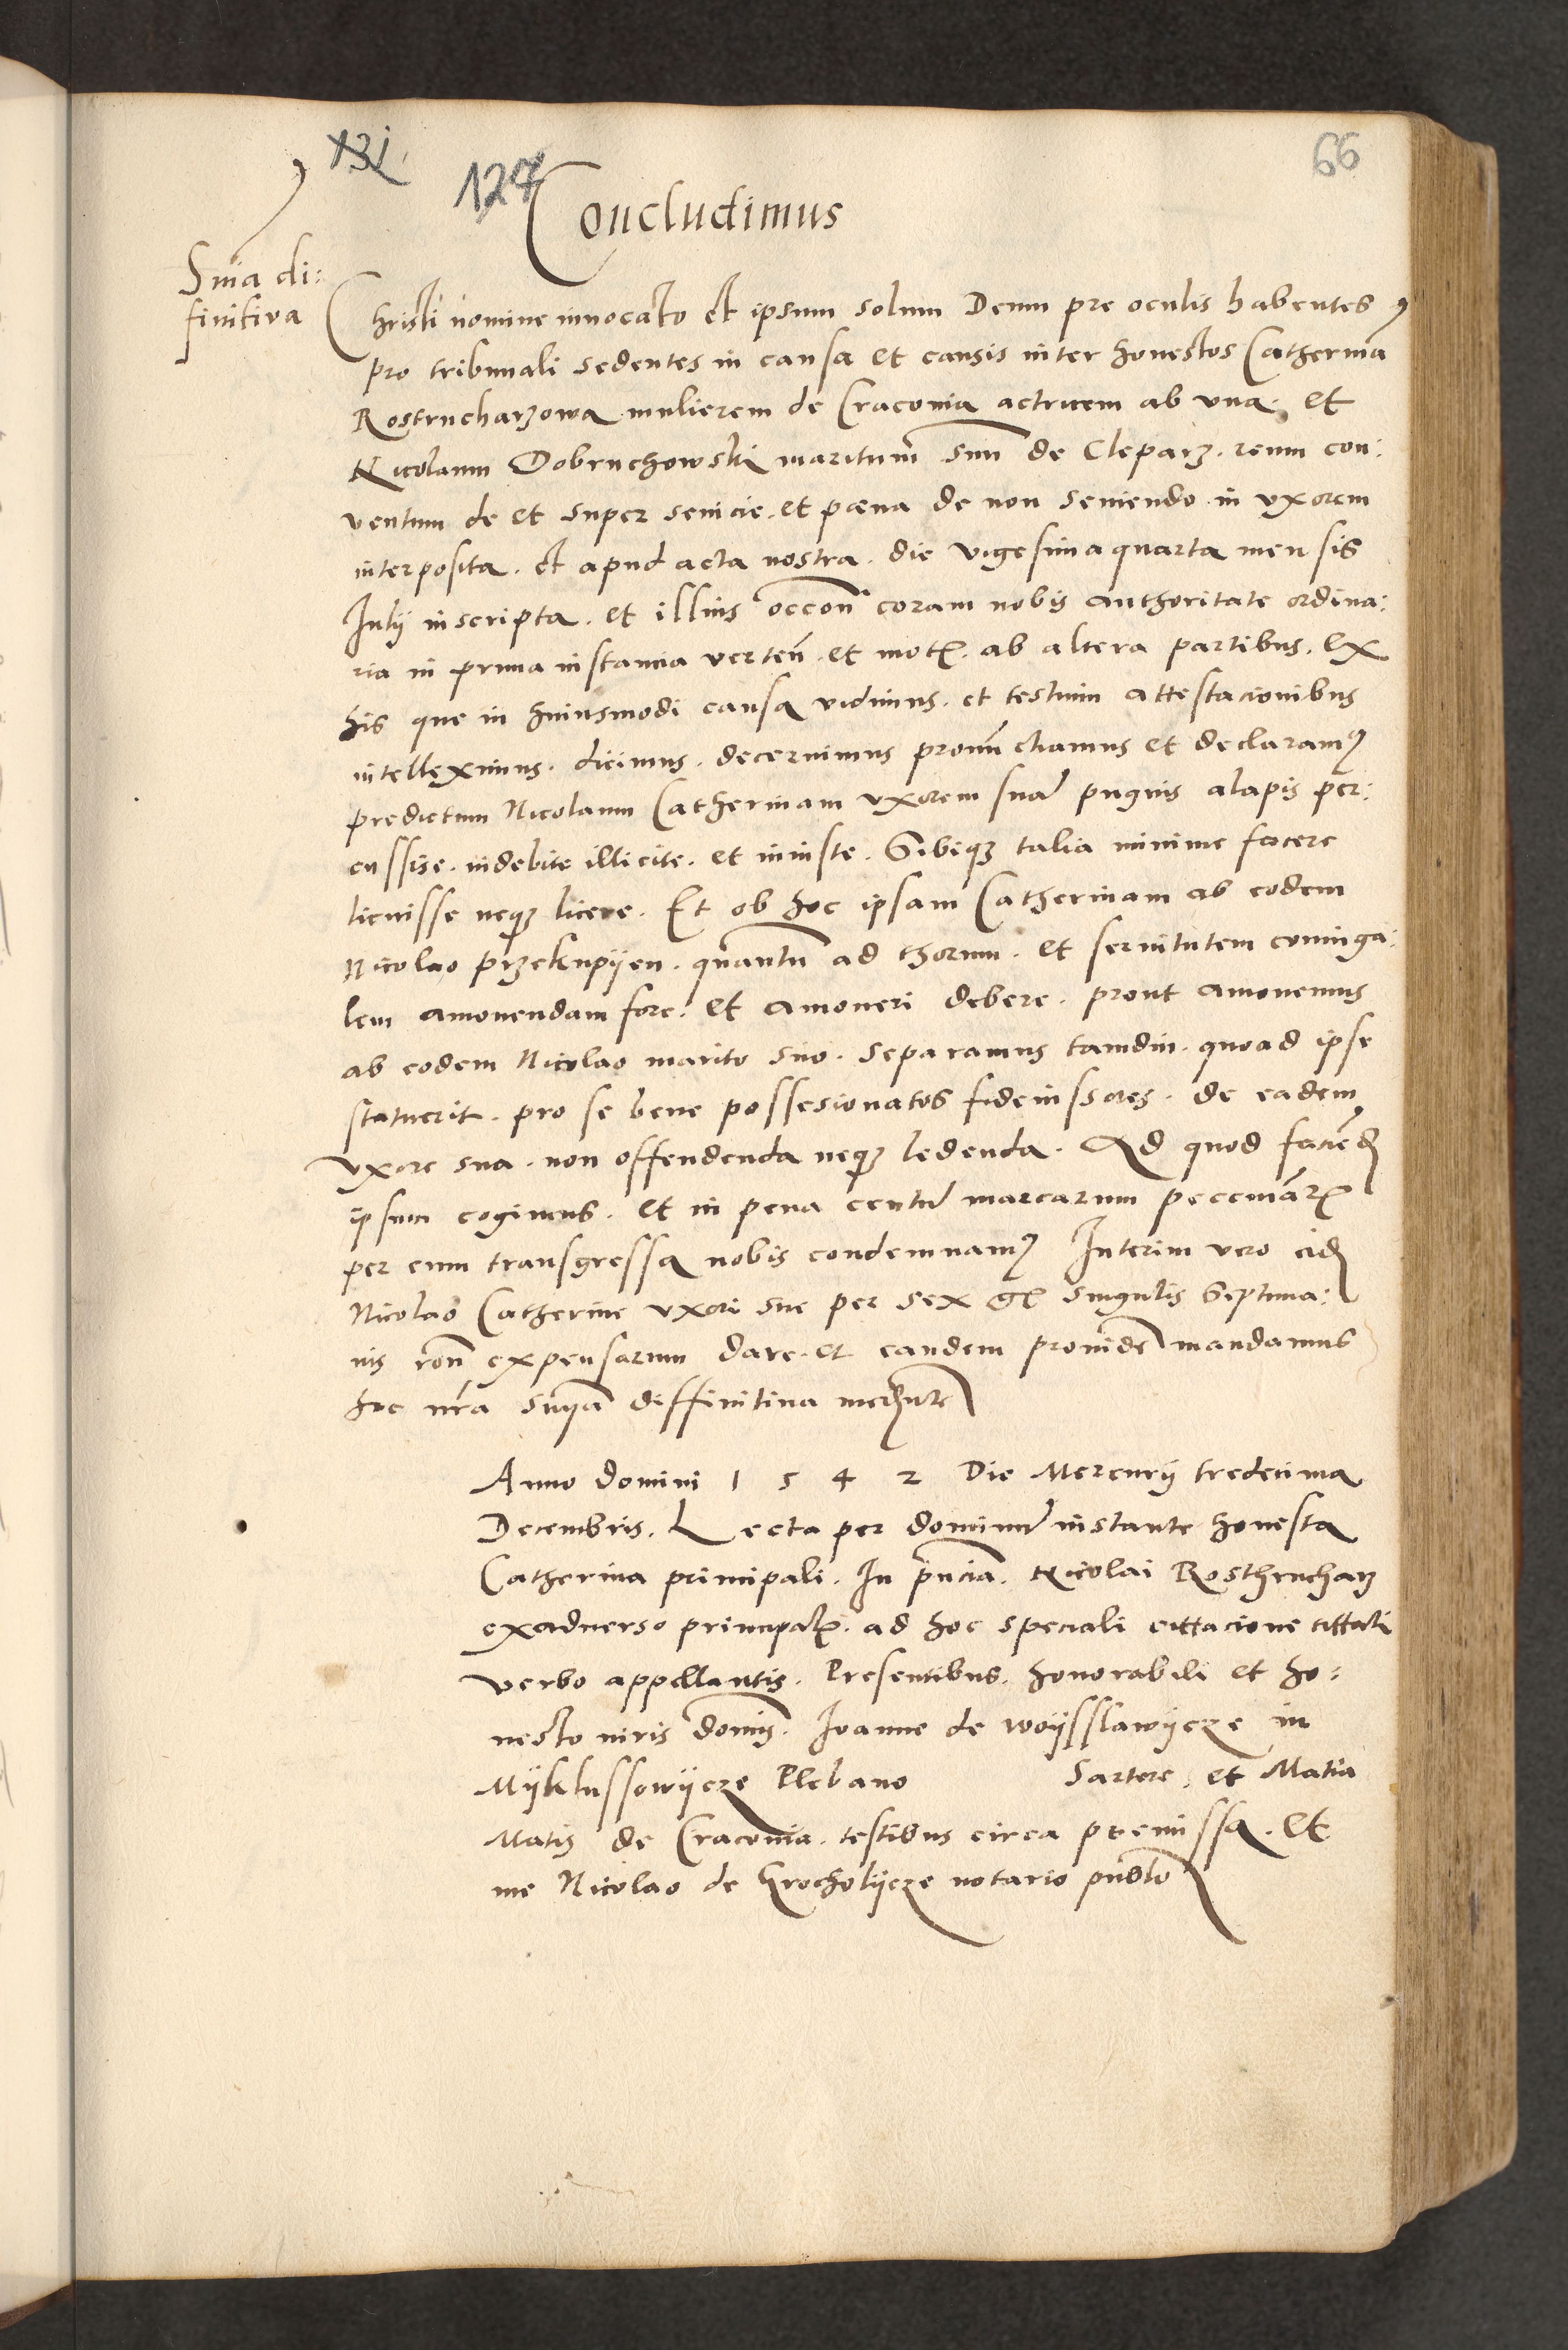 131
127
66
Concludimus
Snia di:
finitiva
Christi nomine invocato et ipsum solum Deum pre oculis habentes
pro tribunali sedentes in causa et causis inter honestos Catherina
Rostrucharzowa mulierem de Cracovia actricem ab una. et
Nicolaum Dobruchowski maritum suu de Cleparz. reum con:
ventum de et super sevicie. et pœna de non seviendo in vxorem
interposita. et apud acta nostra. die vigesima quarta mensis
Iulij inscripta. et illius occon coram nobis authoritate ordina:
ria in prima instancia verten. et mot. ab altera partibus. ex
his que in huiusmodi causa vidimus. et testium attestacionibus
intelleximus. dicimus. decernimus pronunctiamus et declaram9
predictum Nicolaum Catherinam vxorem sua pugnis alapis per:
cussise. indebite illicite. et iniuste. Sibiq3 talia minime facere
licuisse neq3 licere. Et ob hoc ipsam Catherinam ab eodem
Nicolao przekupijen. quantu ad thorum. et servitutem coniuga:
lem amovendam fore. et amoveri debere. prout amovemus
ab eodem Nicolao marito suo. separamus tamdiu. quoad ipse
statuerit. pro se bene possesionatos fideiussores. de eadem
vxore sua. non offendenda neq3 ledenda. Ad quod faciend
ipsum cogimus. et in pena centu marcarum peccuniar
per eum transgressa nobis condemnam9 Interim vero eid
Nicolao Catherine vxori sue per sex gr singulis septima:
nis ron expensarum dare. et eandem providé mandamus
hoc nra snija diffinitiva mediante
Anno domini 1 5 4 2 Die Mercurij tredecima
Decembris. Lecta per dominu instante honesta
Catherina principali. In pncia. Nicolai Rosthrucharz
exadverso principal. ad hoc speciali cittacione cittati
verbo appellantis. Presentibus. honorabili et ho:
nesto viris domis. Ioanne de woijsslawijcze in
Mijklussowijcze Plebano Sartore. et Matia
Matis de Cracovia. testibus circa premissa. et
me Nicolao de Grocholijcze notario publco